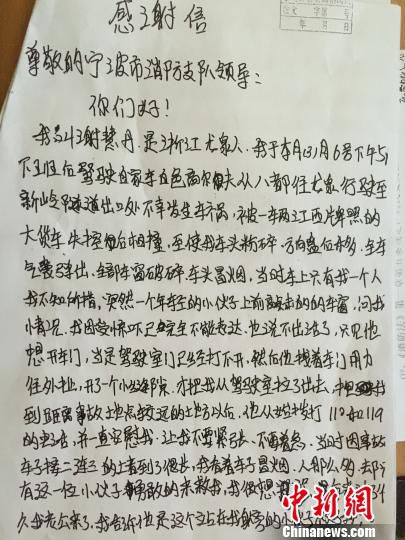 感谢信
尊敬的宁波市消防支队领导：
你们好！
我叫谢慧丹，是浙江龙泉人，我于本月31号下午5
下班后驾驶自家车白色高尔夫从八都往龙泉行驶至
新岭隧道出口处不幸发生车祸，被一辆江西牌照的
大货车失控后相撞，至使我车头粉碎，方向盘
气囊弹出，全部车窗破碎，车头冒烟，当时车上只有我一个人
我不知所措，突然一个年轻的小伙子上前敲击的车窗，问我
情况，我因受惊吓已完全不能表达，也说不出话了，只见他
想开车门，当时驾驶室门已经打不开，然后他拽着车门用力
往外扯，开了一个小缝隙，才把我从驾驶室拉了出去，我
到距离事故地点较远的地方以后，他又给我拨打110和119
的电话，并一直安慰我，让我不要紧张，不要着急，当时因事故
车子接二连三的堵看到了很长，我看着车子冒烟，人都
有这一位小伙子勇敢的来救我，我很想
久我老公来了，我告诉他是这个站在我身旁的小伙子
中新网